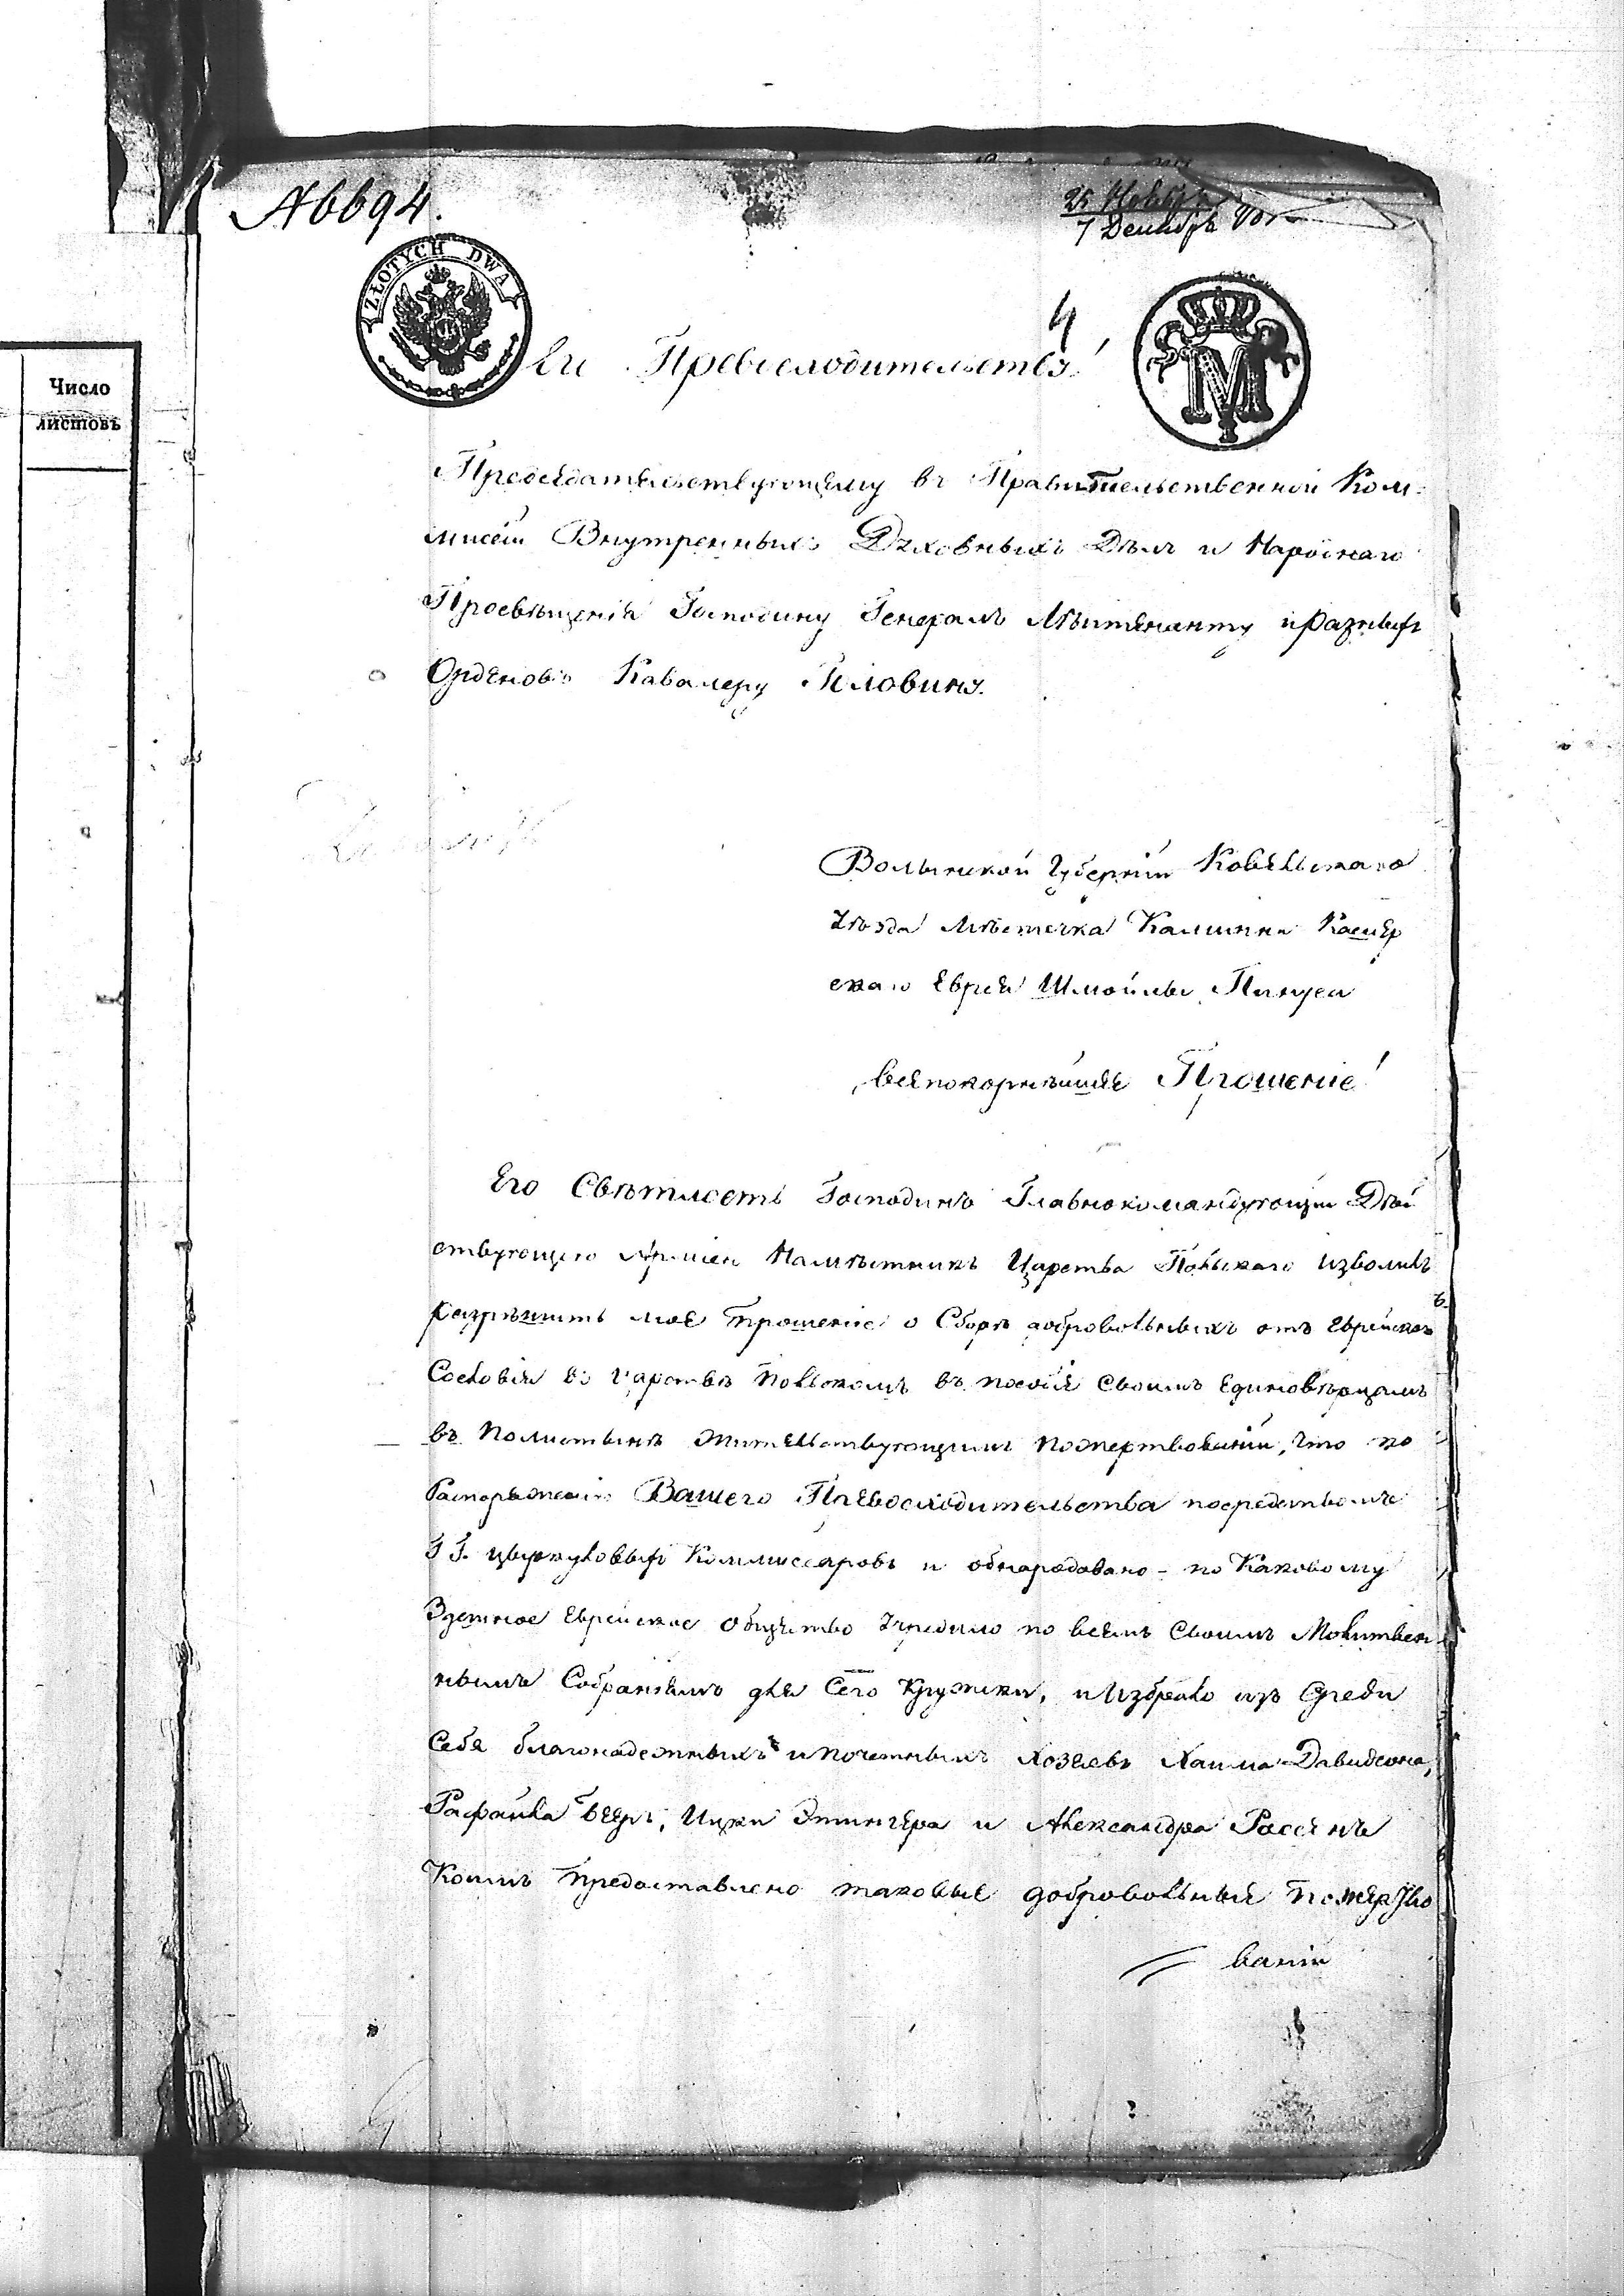 № 6694.
25 Ноября
7 Декабря
ZŁOTYCH DWA
4
Его Превосходительству
Число
листовъ
Председательствующему въ Правительственной Ком-
мисіи Внутренныхъ Духовныхъ Дѣлъ и Народнаго
Просвѣщенія Господину Генералъ Лѣйтенанту и разныхъ
Орденовъ Кавалеру Головину.
Волынской Губерніи Ковельскаго
Уѣзда Мѣстечка Камина Кашер
скаго Еврея Шмойлы
всепокорнѣйшее Прошеніе
Его Свѣтлость Господинъ Главнокомандующій Дѣй
ствующею Арміею Намѣстникъ Царства Польскаго изволилъ
разрѣшить мое прошеніе о Сборѣ добровольныхъ отъ Еврейскаго
Сословія въ Царствѣ Польскомъ въ пособіе Своимъ Единовѣрцамъ
въ Полистынѣ жительствующимъ пожертвованіи, что по
Распоряженію Вашего Превосходительства посредствомъ
Г Г. цыркуловыхъ Коммиссаровъ и обнародовано - по Каковому
Здешное Еврейское Общество Учредило по всемъ Своимъ Молитвен
нымъ Собраніемъ для Сего Кружки, и Избрало изъ Среди
Себя благонадежныхъ и почетныхъ Хозяевъ Хаима Давидсона,
Рафаила Бееръ, Ицки Этингера и Александра Рассенъ
Коимъ предоставлено таковые добровольные пожертво
ваніи